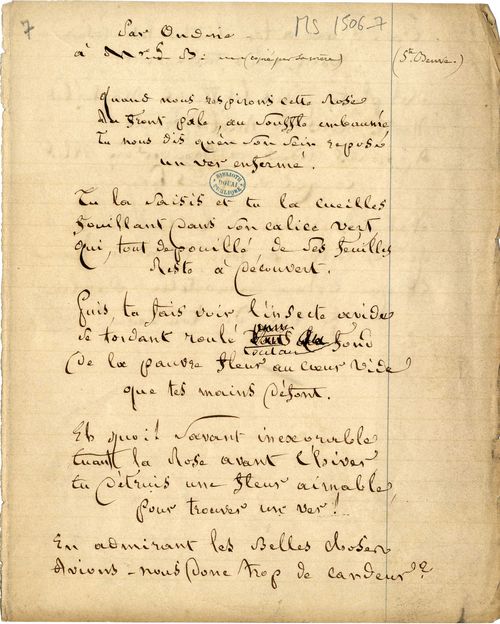 7
MS 1506-7
Par Ondine
à Mr Ste B. (copié par sa mère)
(Ste Beuve.)
Quand nous respirons cette Rose
Au front pâle, au souffle embaumé
Tu nous dis qu'en son sein repose
un ver enfermé.
BIBLIOTH.
DOUAI
PUBLIQUE
Tu la saisis et tu la cueilles
fouillant dans son calice vert
qui, tout dépouillé de ses feuilles
Reste à découvert.
Puis, tu fais voir l'insecte avide
se tordant roulé fond
de la pauvre fleur au cœur vide
que tes mains défont.
Eh quoi! Savant inexorable
tuant la Rose avant l'hiver
tu détruis une fleur aimable,
pour trouver un ver!
En admirant les Belles choses
Avions-nous donc trop de candeur??